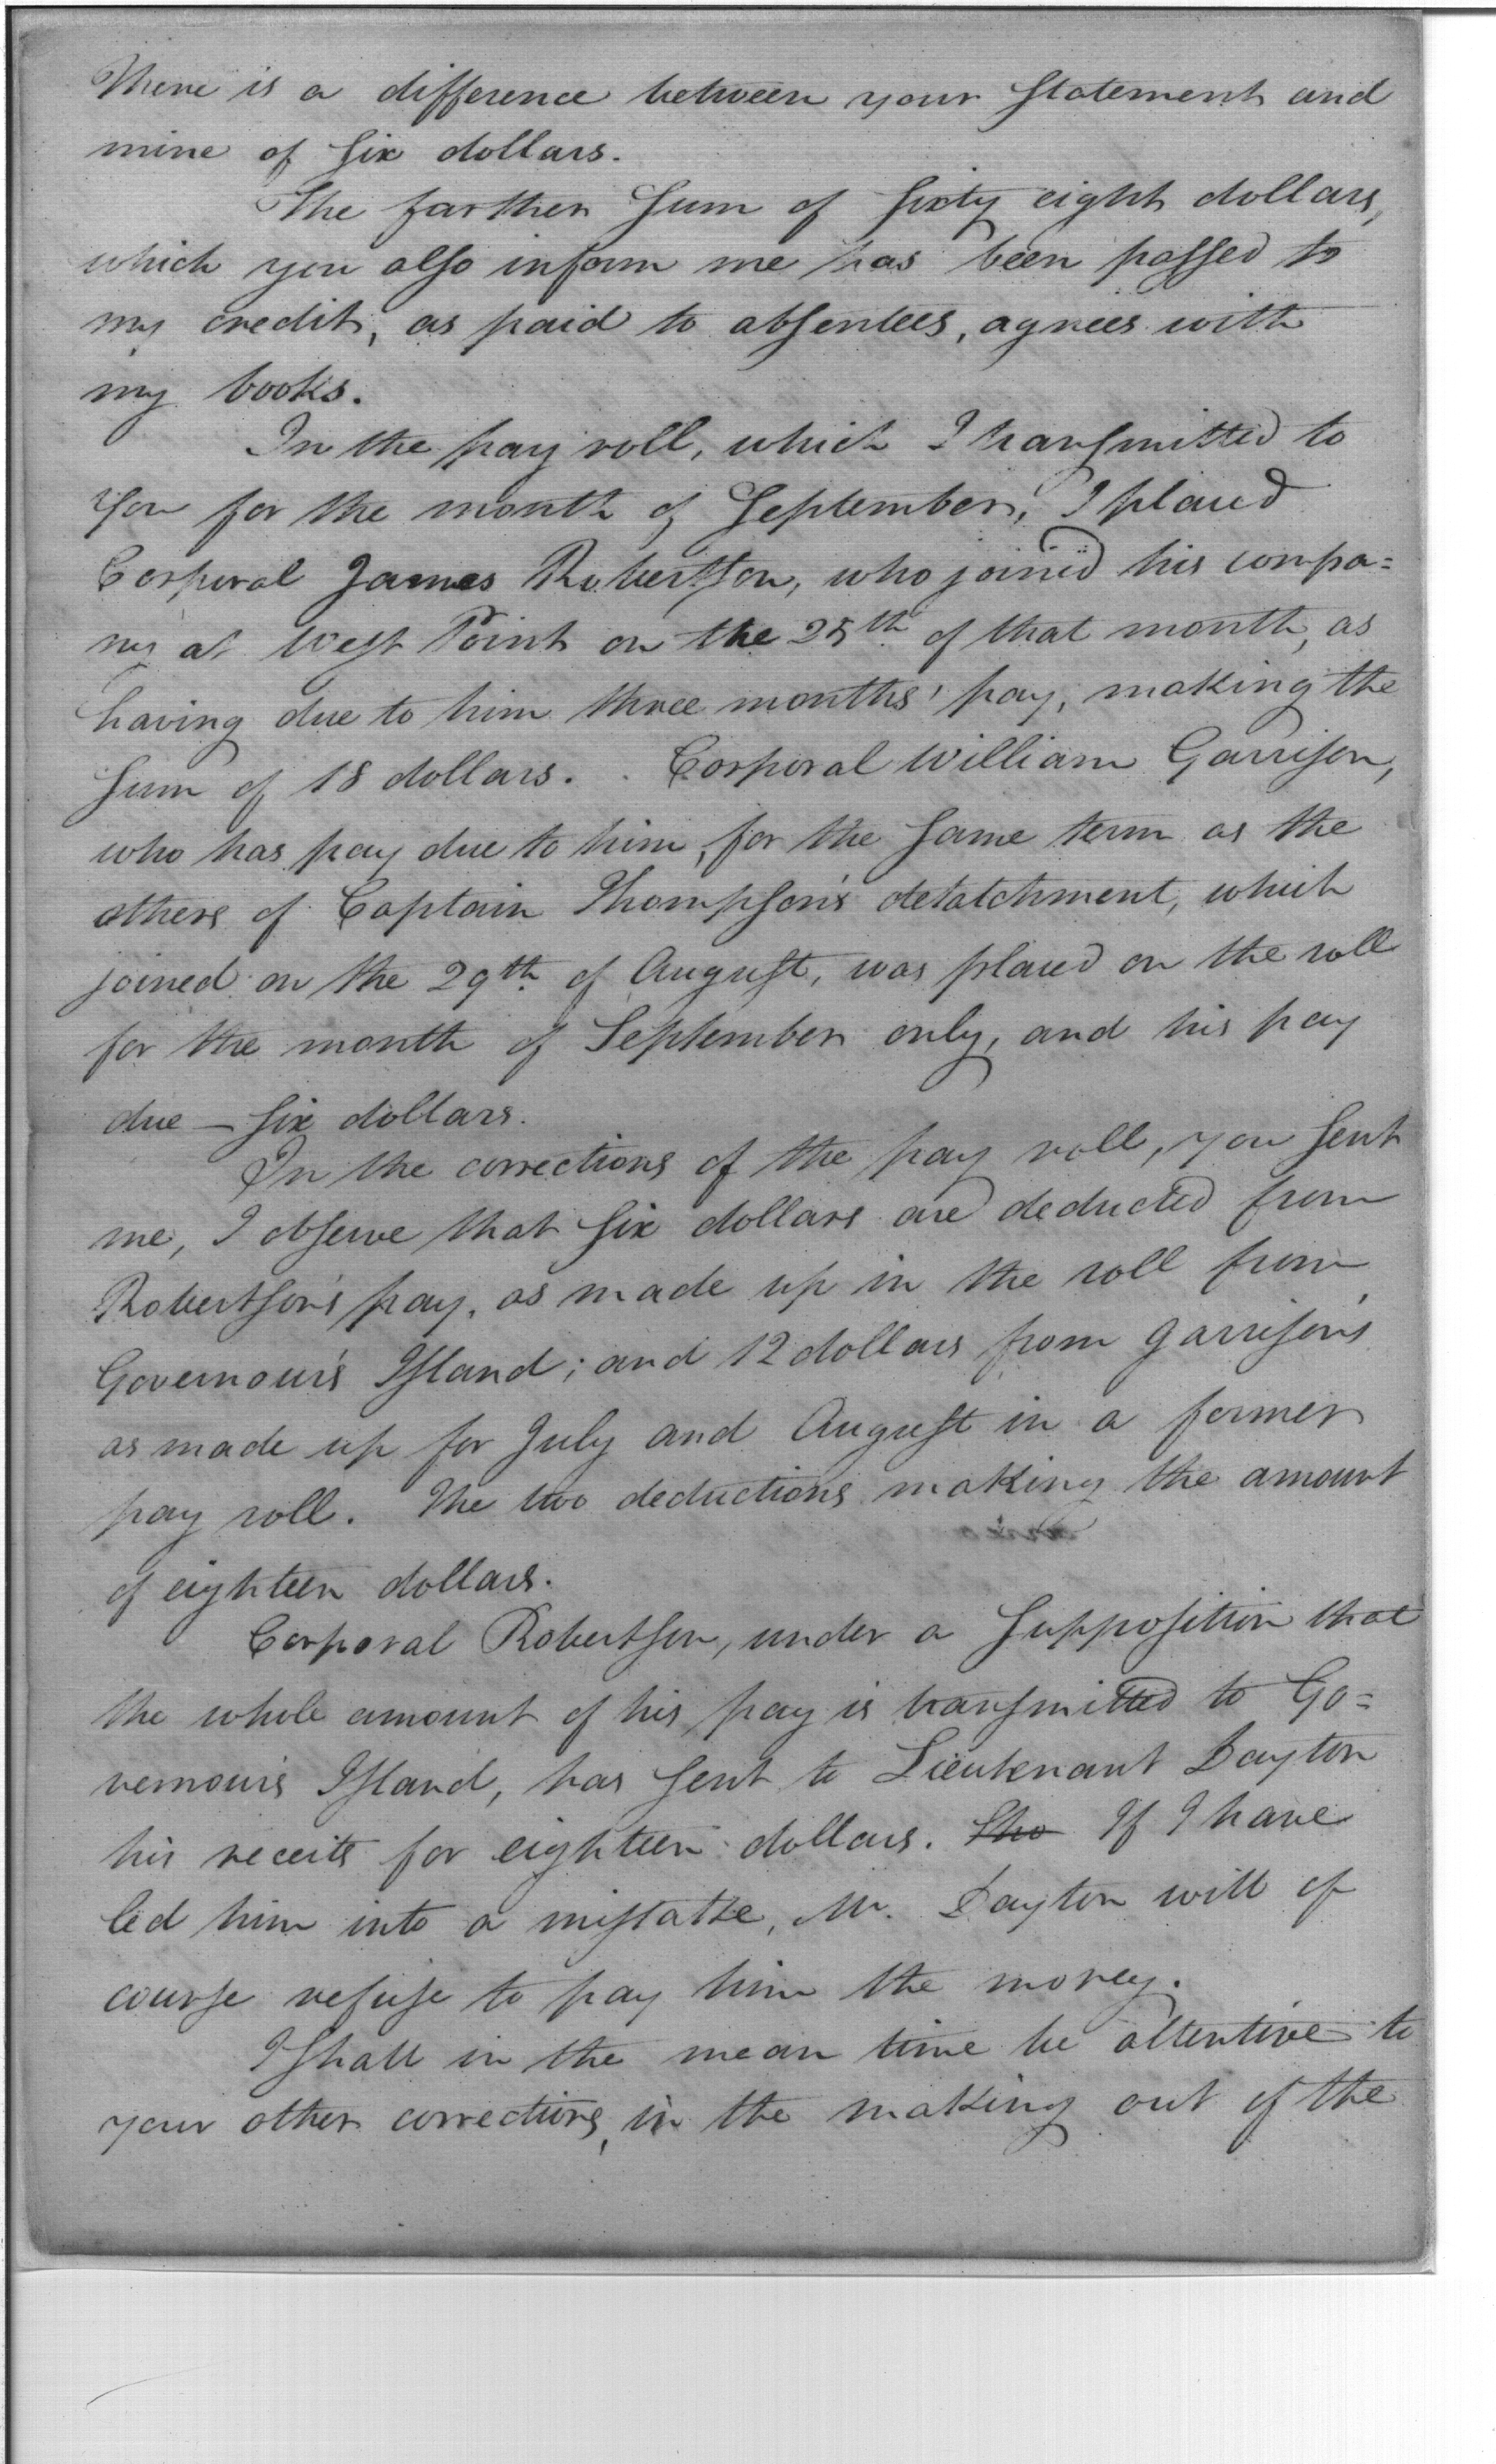 There is a difference between your statement and
mine of six dollars.
The farther sum of sixty eight dollars,
which you also inform me has been passed to
my credit, as paid to absentees, agrees with
my books.
In the pay roll, which I transmitted to
you for the month of September, I placed
Corporal James Robertson, who joined his compa=
ny at West Point on the 25th of that month, as
having due to him three months' pay, making the
sum of 18 dollars. Corporal William Garrison,
who has pay due to him, for the same term as the
others of Captain Thompson's detatchment, which
joined on the 29th of August, was placed on the roll
for the month of September only, and his pay
due — six dollars.
In the corrections of the pay roll, you sent
me, I observe that six dollars are deducted from
Robertson's pay, as made up in the roll from
Governour's Island; and 12 dollars from Garrison's
as made up for July and August in a former
pay roll. The two deductions making the amount
of eighteen dollars.
Corporal Robertson, under a supposition that
the whole amount of his pay is transmitted to Go=
vernour's Island, has sent to Lieutenant Dayton
his receits for eighteen dollars. Sho If I have
led him into a mistake, Mr. Dayton will of
course refuse to pay him the money.
I shall in the mean time be attentive to
your other corrections, in the making out of the